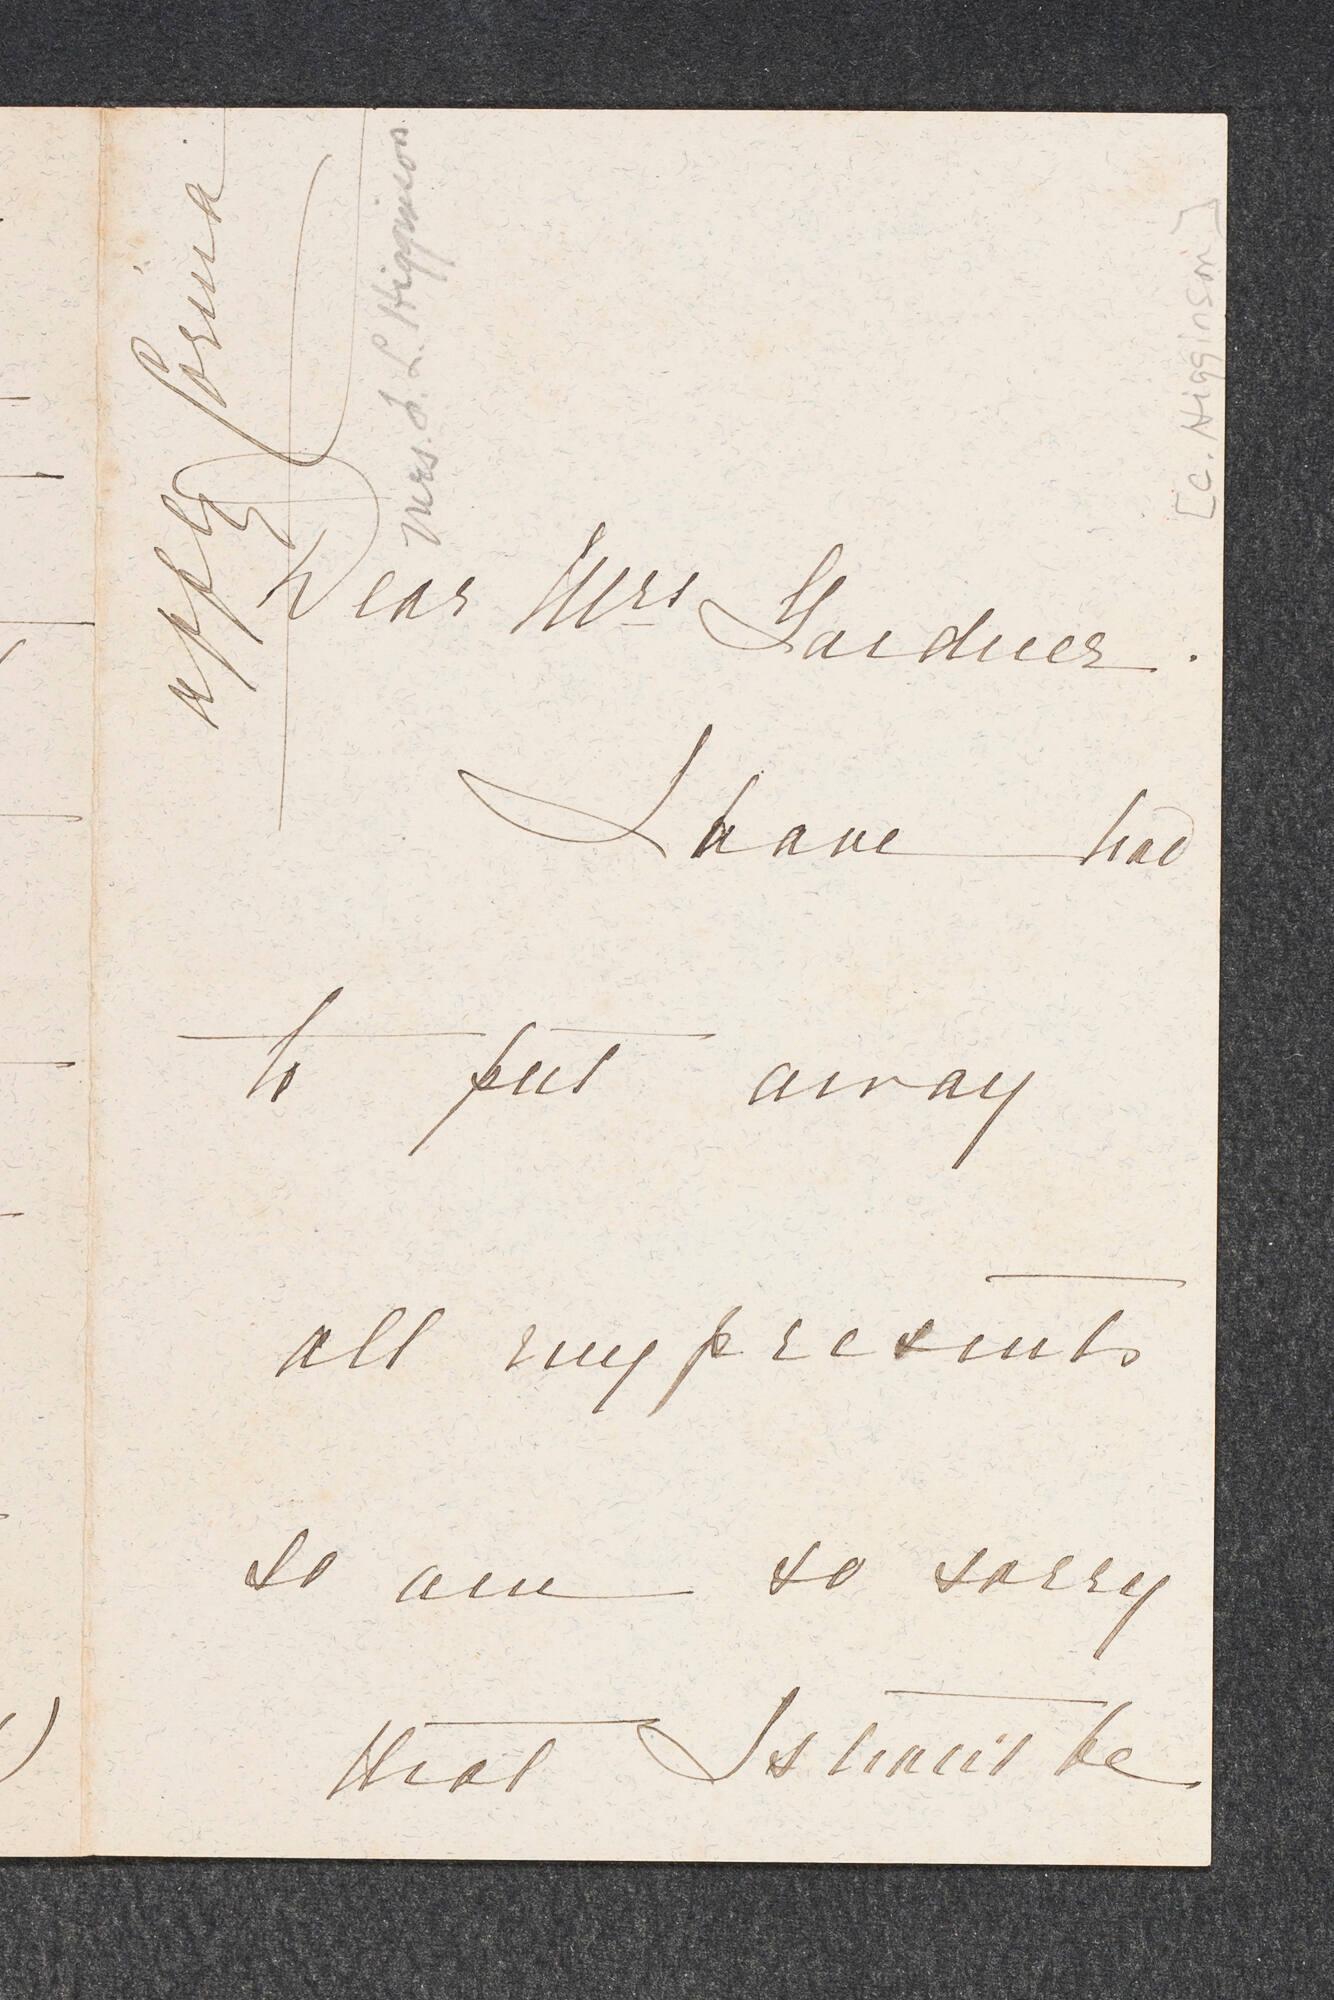 Corina
Mrs. J. L. Higginson
[C. Higginson]
Dear Mrs Gardner.
I have had
to put away
all my presents
so am so sorry
that I shan't be